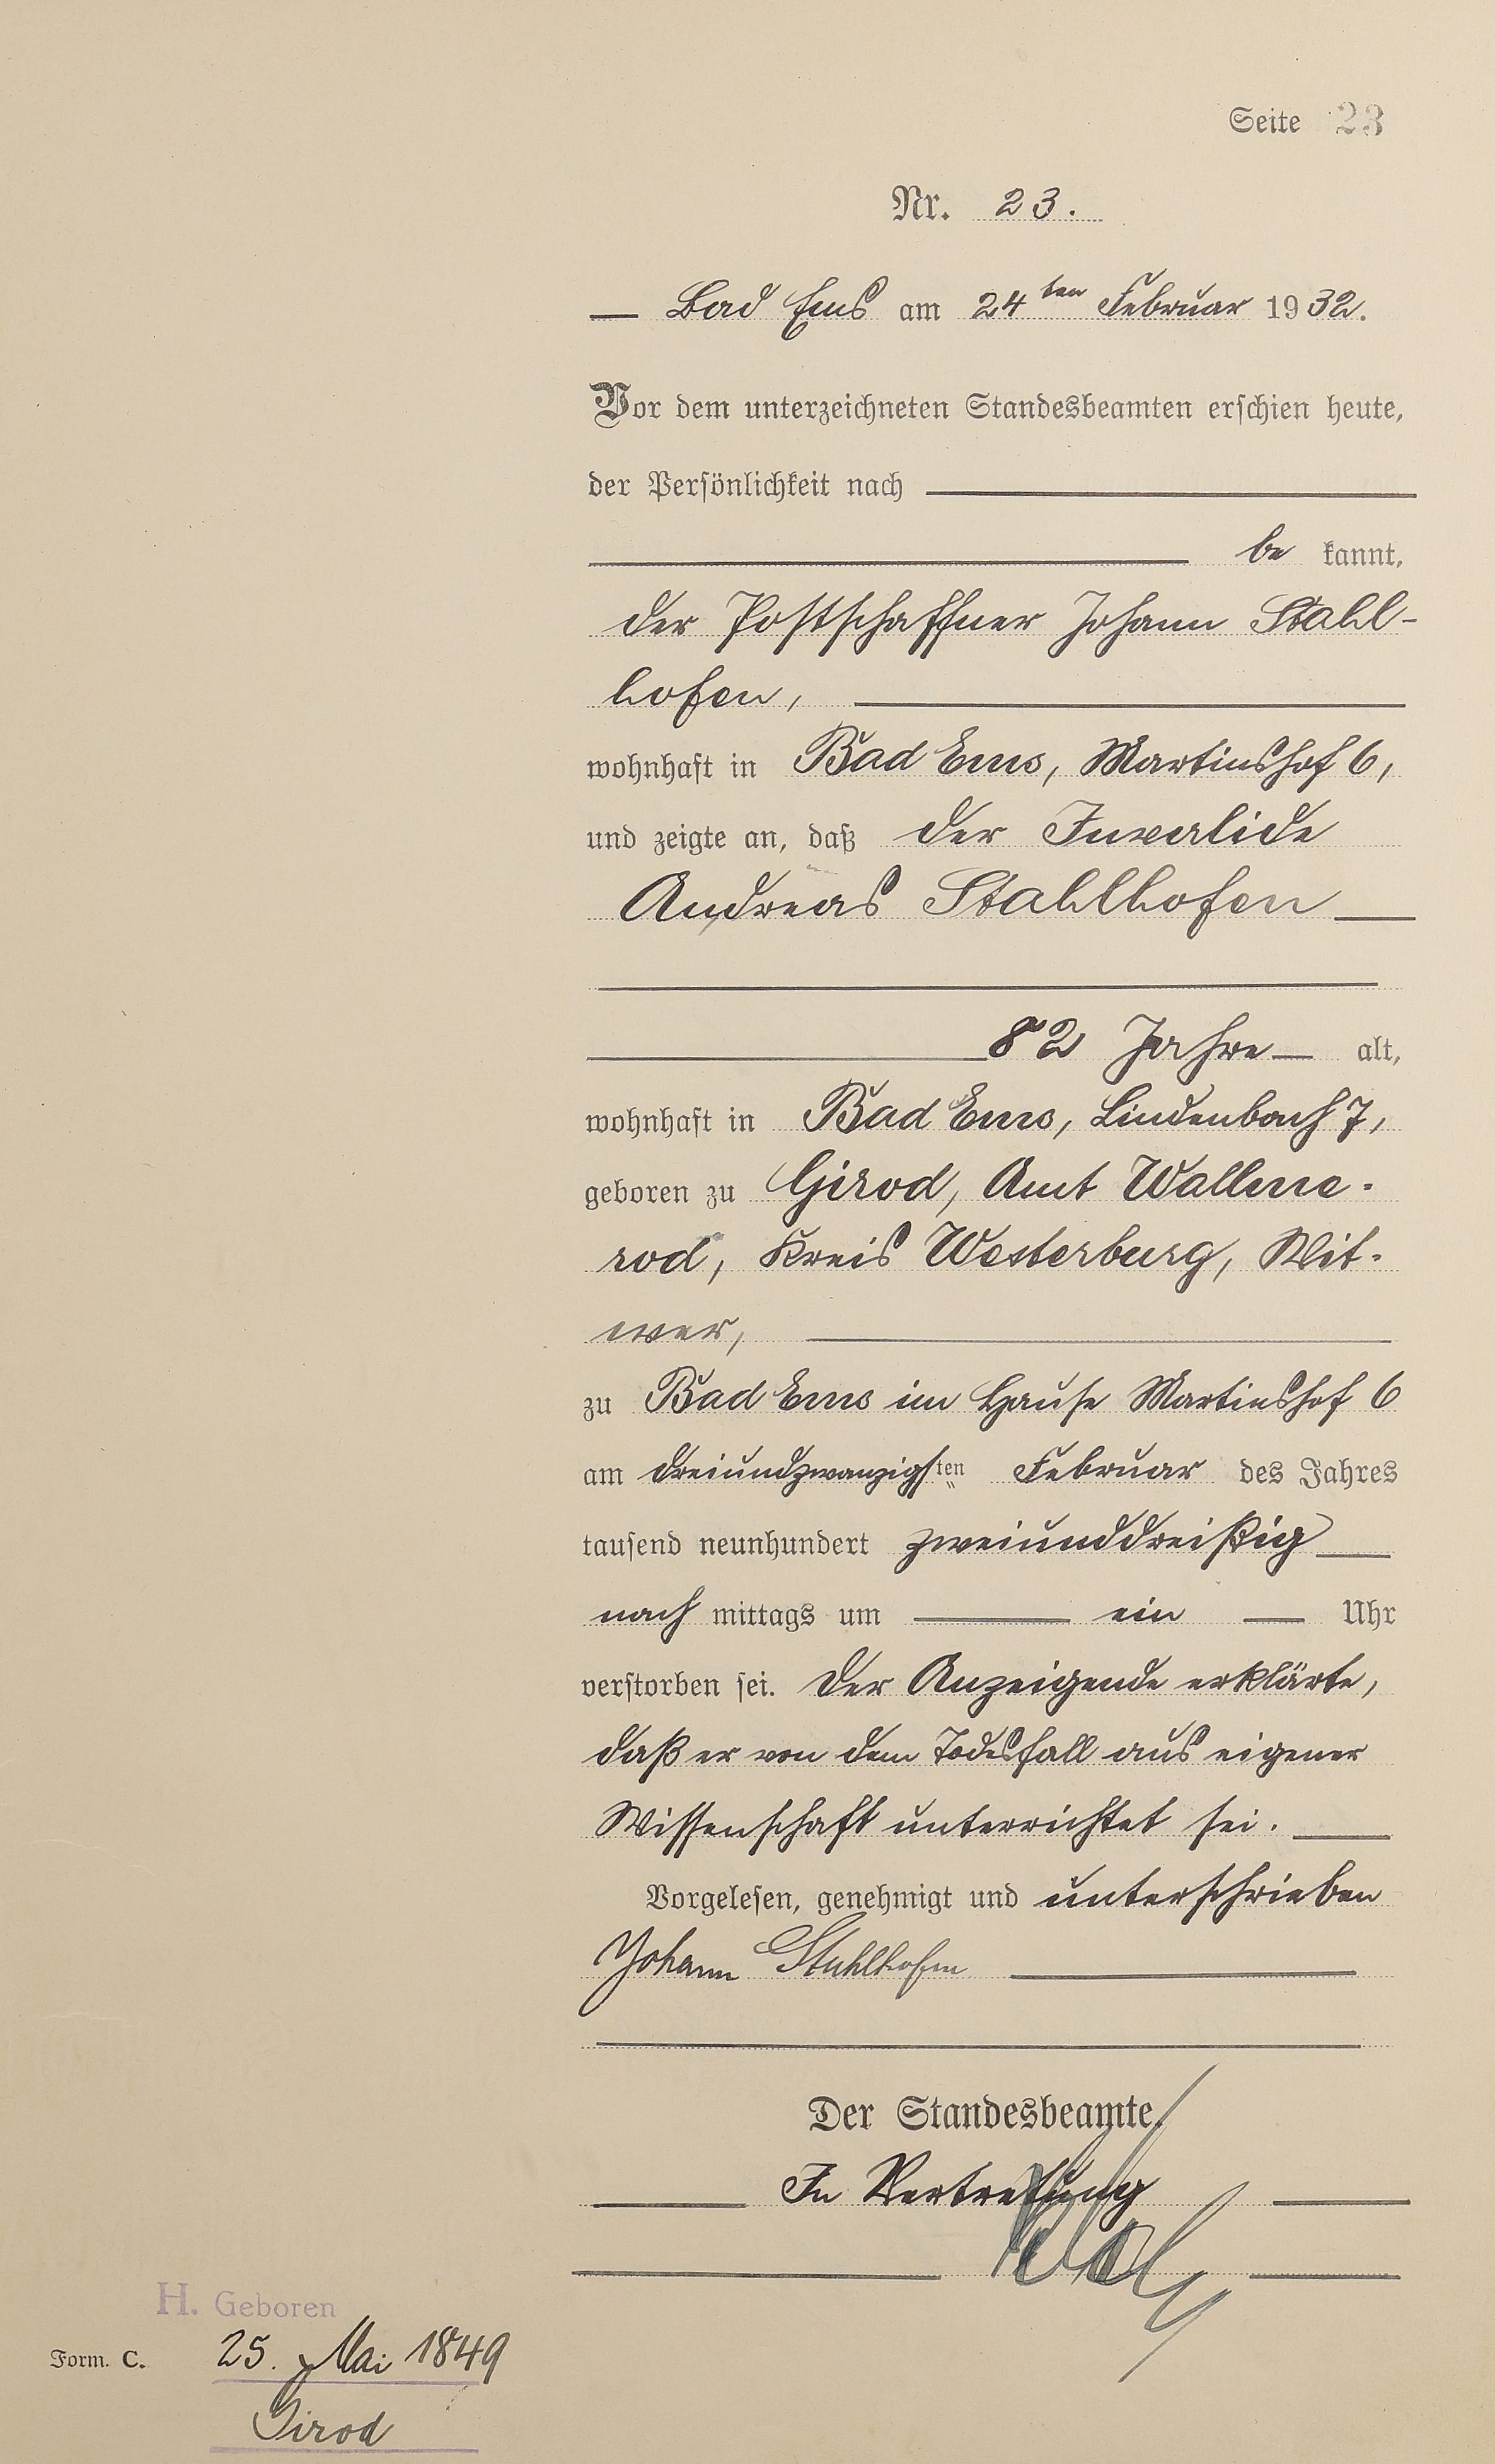 Seite 23
Nr. 23.
Bad Ems am 24ten Februar 1932.
Vor dem unterzeichneten Standesbeamten erschien heute,
der Persönlichkeit nach
be kannt,
der Postschaffner Johann Stahl-
hofen,
wohnhaft in Bad Ems, Martinshof 6,
und zeigte an, daß der Invalide
Andreas Stahlhofen
82 Jahre alt,
wohnhaft in Bad Ems, Lindenbach 7,
geboren zu Girod, Amt Wallme-
rod, Kreis Westerburg, Wit-
wer,
zu Bad Ems im Hause Martinshof 6
am dreiundzwanzigsten Februar des Jahres
tausend neunhundert zweiunddreißig
nach mittags um ein Uhr
verstorben sei. Der Anzeigende erklärte,
daß er von dem Todesfall aus eigener
Wissenschaft unterrichtet sei.
Vorgelesen, genehmigt und unterschrieben
Johann Stahlhofen
Der Standesbeamte.
In Vertretung
H. Geboren
Form. C. 25. Mai 1849
Girod